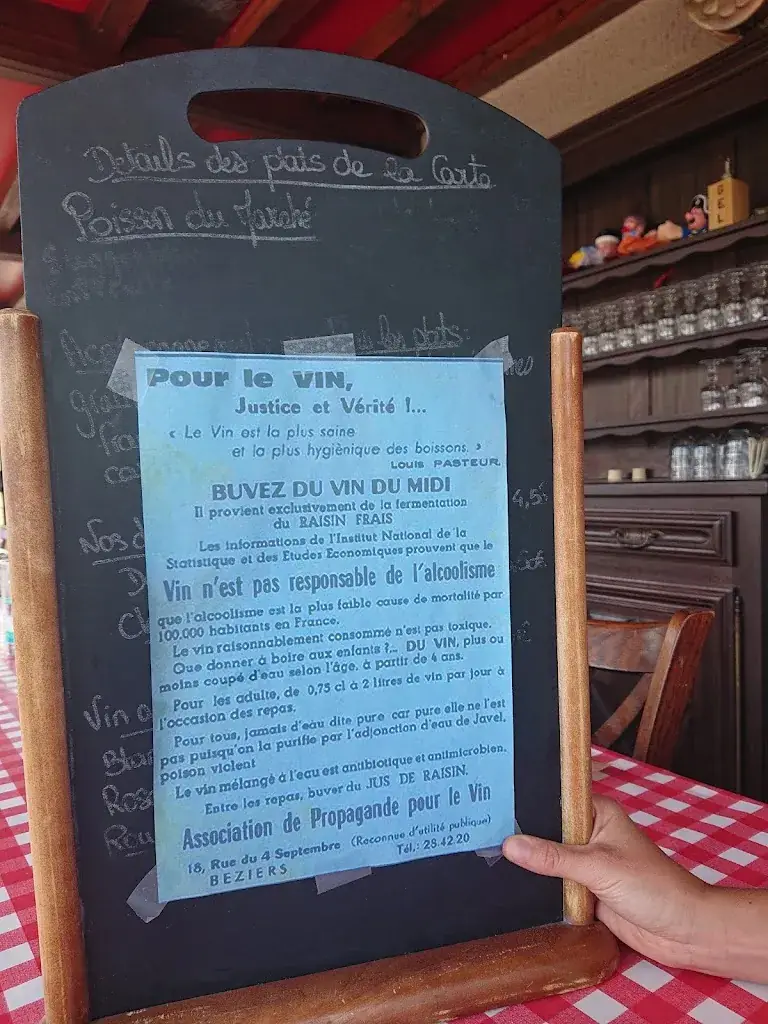 Détails des plats de la Carte
Poisson du Marché
les plats:
GEL
Pour le VIN,
Justice et Vérité !...
« Le Vin est la plus saine
et la plus hygiènique des boissons. »
Louis PASTEUR.
BUVEZ DU VIN DU MIDI
Il provient exclusivement de la fermentation
du RAISIN FRAIS
Les informations de l'Institut National de la
Statistique et des Etudes Economiques prouvent que le
Vin n'est pas responsable de l'alcoolisme
que l'alcoolisme est la plus faible cause de mortalité par
100.000 habitants en France.
Le vin raisonnablement consommé n'est pas toxique.
Que donner à boire aux enfants ?... DU VIN, plus ou
moins coupé d'eau selon l'âge, à partir de 4 ans.
Pour les adulte, de 0,75 cl à 2 litres de vin par jour à
l'occasion des repas.
Pour tous, jamais d'eau dite pure car pure elle ne l'est
pas puisqu'on la purifie par l'adjonction d'eau de Javel,
poison violent
Le vin mélangé à l'eau est antibiotique et antimicrobien.
Entre les repas, buver du JUS DE RAISIN.
Association de Propagande pour le Vin
18, Rue du 4 Septembre (Reconnue d'utilité publique)
BEZIERS Tél.: 28.42.20
4,5€
Nos
Vin